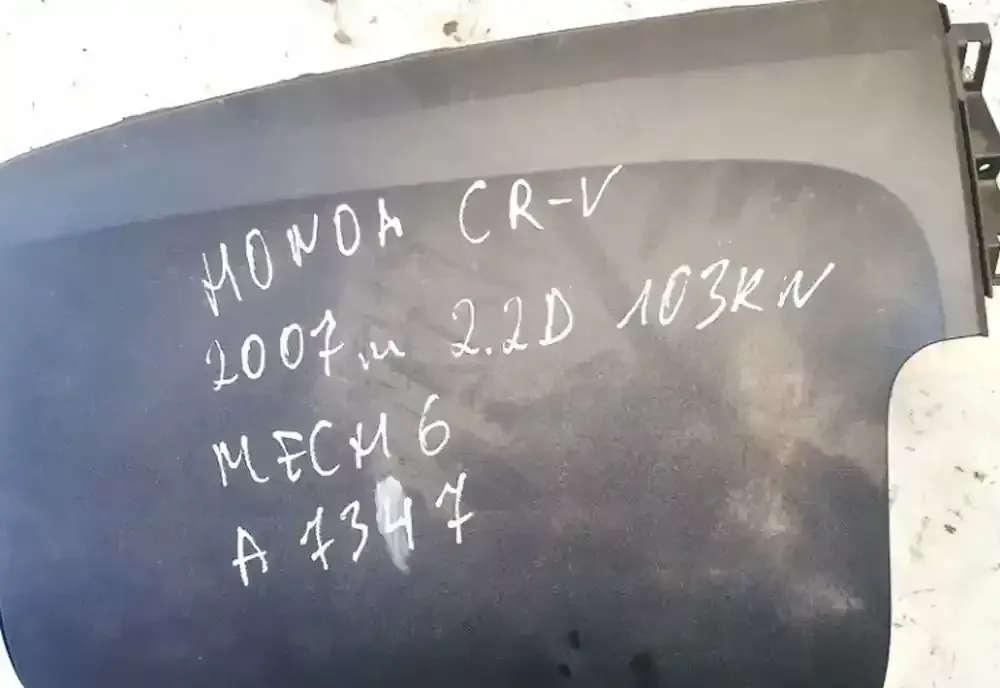 HONDA CR-V
2007m 2.2D 103KW
MECH 6
A7347